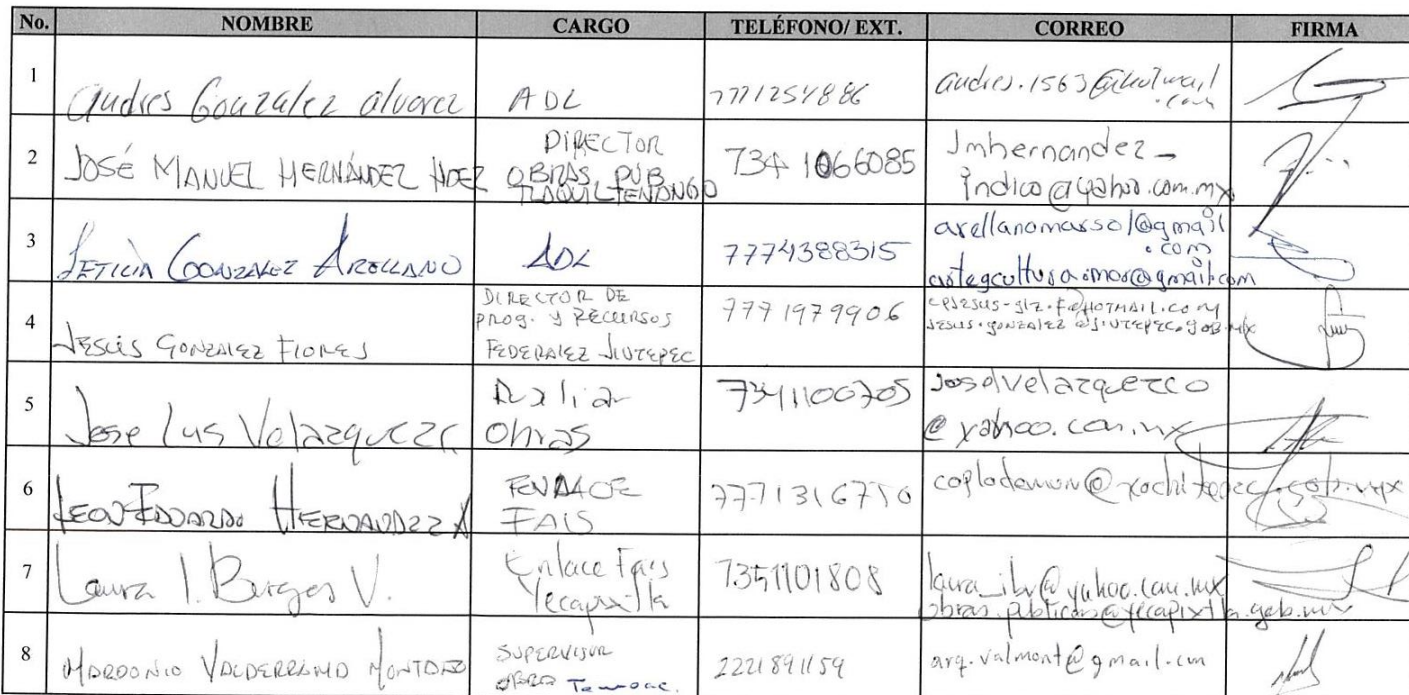 No. NOMBRE CARGO TELÉFONO/ EXT. CORREO FIRMA
1 Andres Gonzalez alvarez ADL 7771254886 andres.1563@hotmail
.com
2 JOSÉ MANUEL HERNÁNDEZ HDEZ DIRECTOR
OBRAS PUB
TLAQUILTENANGO 734 1066085 Jmhernandez_
indico@yahoo.com.mx
3 LETICIA GONZALEZ ARELLANO ADL 7774388315 arellanomarsol@gmail
.com
4 JESÚS GONZALEZ FLORES DIRECTOR DE
PROG. Y RECURSOS
FEDERALEZ JIUTEPEC 7771979906
JESUS.GONZALEZ@JIUTEPEC.GOB.MX
5 Jose Luis Velazquez C
Obras 7341100705 Josolvelazquezco
@yahoo.com.mx
6 LEON EDUARDO HERNANDEZ A
FAIS 7771316750
7 Laura I. Burgos V. Enlace Fais
Yecapixtla 7351101808 laura_ibv@yahoo.com.mx
obras.publicas@yecapixtla.gob.mx
8 MARDONIO VALDERRAMA MONTAÑEZ SUPERVISOR
OBRA Temoac. 2221891159 arq.valmont@gmail.com